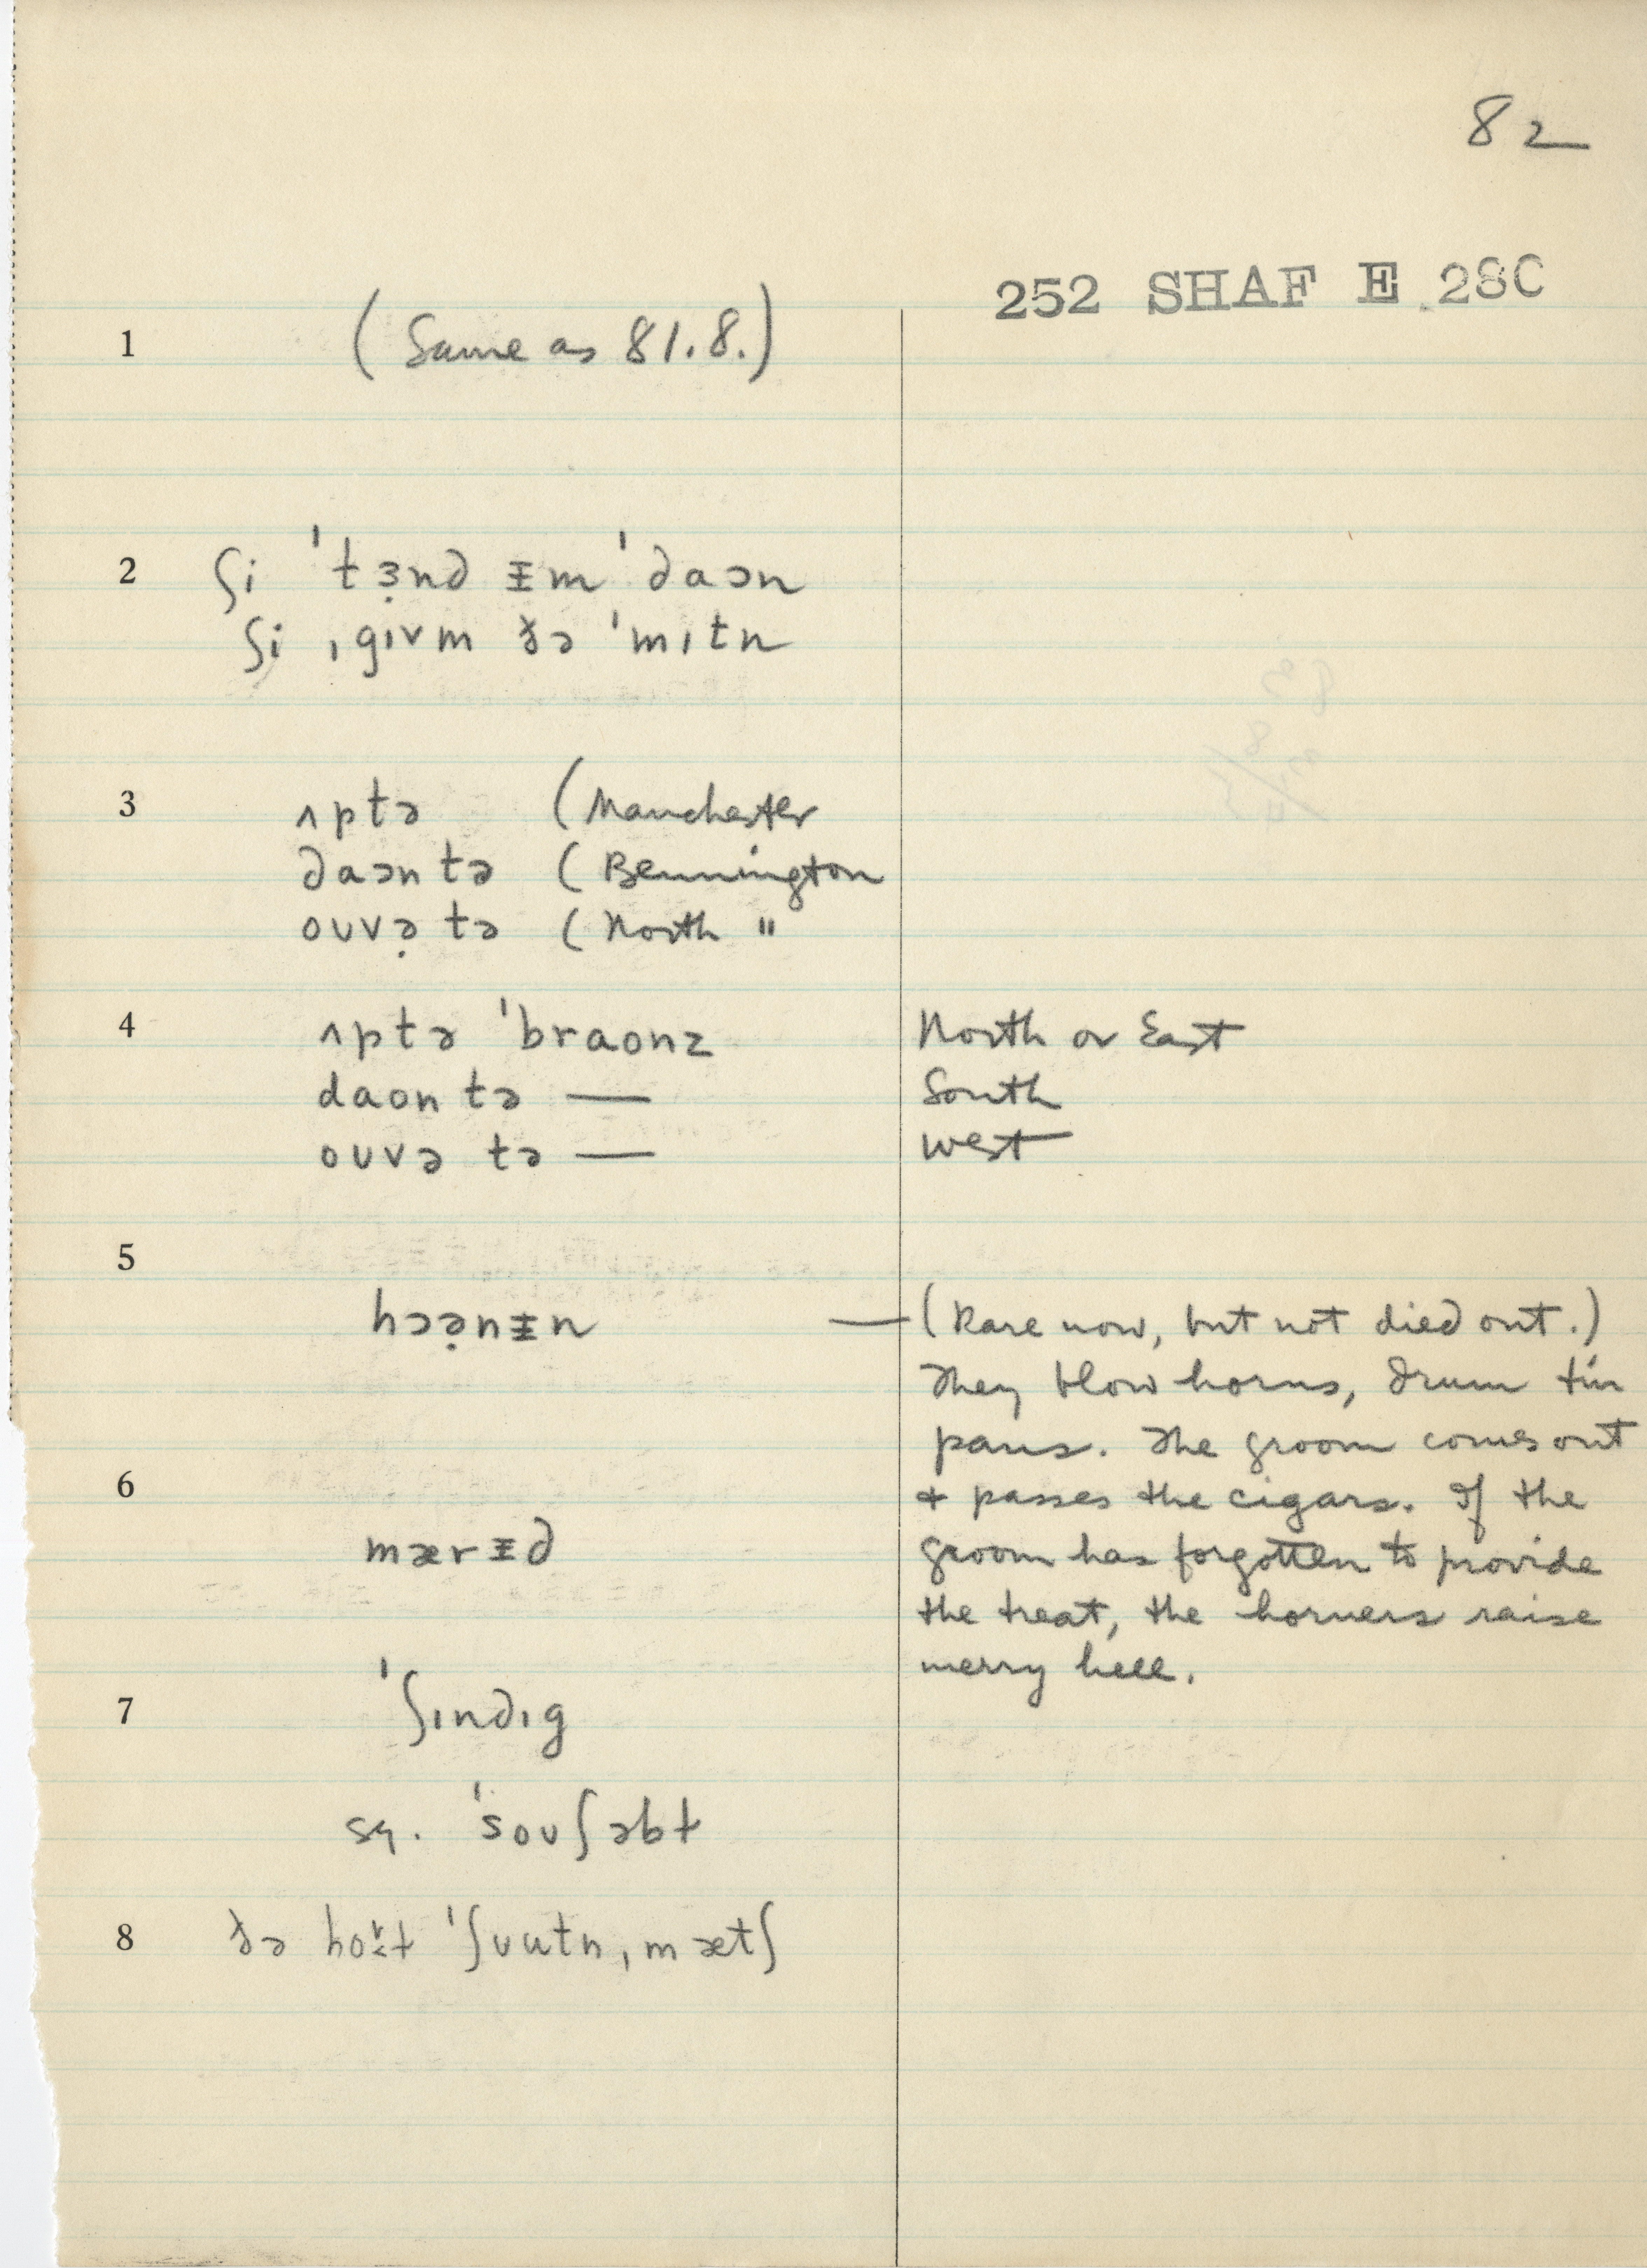 82
252 SHAF E 28C
1 (Same as 81.8.)
2 ʃi 'tɜ̣nd ɪ̵m 'daɔn
ʃi ˌgɪvm ðə 'mɪtn
3 ʌptə (Manchester
daɔn tə (Bennington
oʊvə̣ tə (North "
4 ʌptə 'braʊnz North or East
daʊn tə — South
oʊvə tə — West
5
hɔə̣nɪ̵n — (Rare now, but not died out.)
They blow horns, drum tin
pans. The groom comes out
6 & passes the cigars. If the
mærɪ̵d groom has forgotten to provide
the treat, the horners raise
merry hell.
7 'ʃɪndɪg
sq. 'soʊʃəbɫ
8 ðə 'ʃuutn, mætʃ